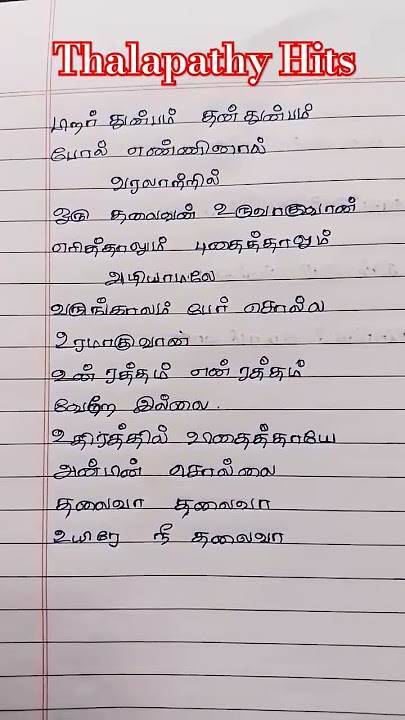 Thalapathy Hits
பிறர் துன்பம் தன் துன்பம்
போல் எண்ணினால்
வரலாற்றில்
ஒரு தலைவன் உருவாகுவான்
எரித்தாலும் புதைத்தாலும்
அழியாமலே
வருங்காலம் பேர் சொல்ல
உரமாகுவான்
உன் ரத்தம் என் ரத்தம்
வேறே இல்லை.
உதிரத்தில் விதைத்தாயே
அன்பின் சொல்லை
தலைவா தலைவா
உயிரே நீ தலைவா